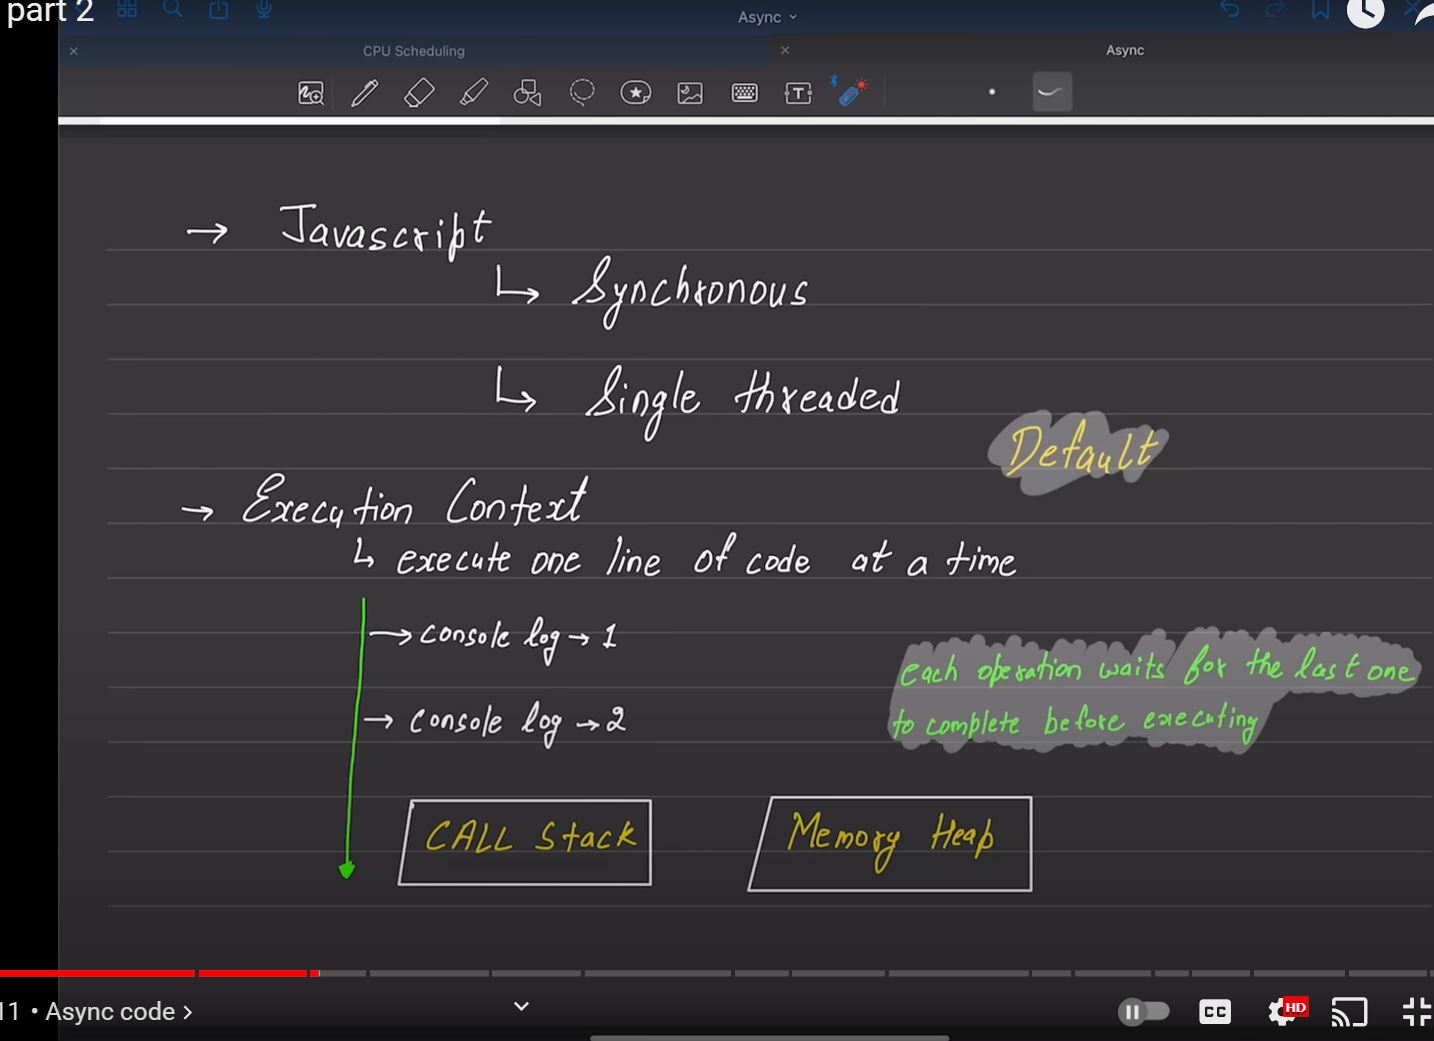 part 2
Async
CPU Scheduling
Async
T
→ Javascript
↳ Synchronous
↳ Single threaded
Default
→ Execution Context
↳ execute one line of code at a time
→ console log → 1
each operation waits for the last one
→ console log → 2
to complete before executing
CALL Stack
Memory Heap
11 • Async code >
CC
HD